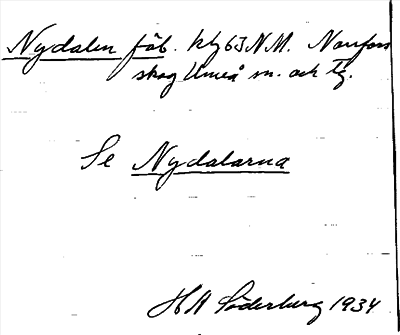 Nydalen fäb. kbg 63 NM. Norrfors
skog Umeå sn. och tg.
Se Nydalarna
HA Söderberg 1934